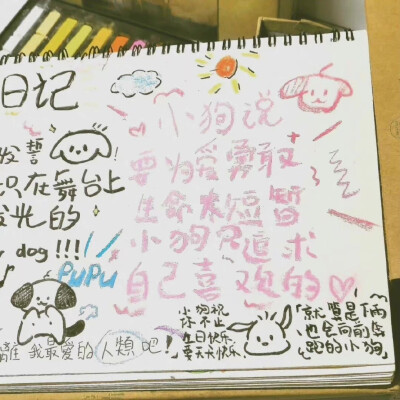 日记
发誓
只在舞台上
发光的
dog!!!
PUPU
我最爱的人類吧!
小狗说
要为爱勇敢
生命很短暂
小狗只追求
自己喜欢的
小狗祝
你不止
生日快乐,
要天天快乐
「就算是下雨
也会向前奔
跑的小狗」